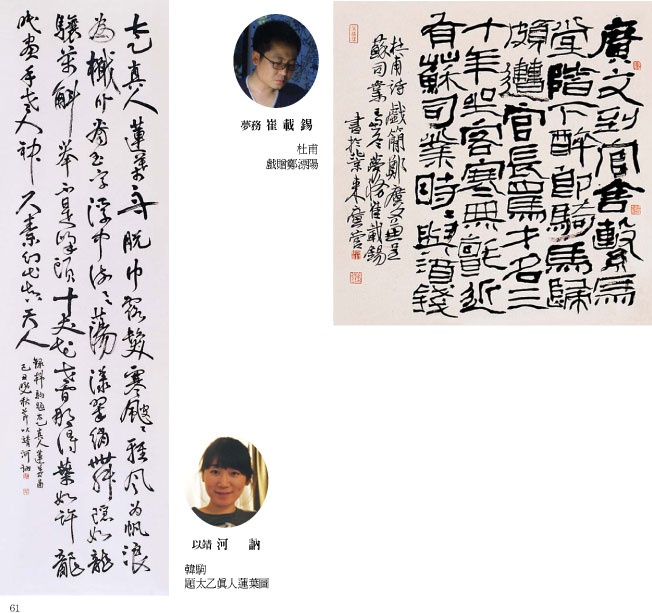 太乙真人蓮葉舟脫巾露髮寒颼〻輕風為帆浪
為檝臥看玉宇浮中流〻蕩漾翠綃舞穩如龍
驤萬斛舉不是峰頭十丈花世間那得葉如許龍
眠畫手老入神尺素幻出真天人
錄韓駒題太乙真人蓮葉圖
己丑秋節以靖河訥
夢務 崔載錫
杜甫
戲贈鄭溧陽
廣文到官舍繫馬
堂階下醉即騎馬歸
頗遭官長罵才名三
十年坐客寒無氈近
有蘇司業時時與酒錢
杜甫詩戲簡鄭廣文虔呈
蘇司業夢務崔載錫
書於紫東
以靖 河訥
韓駒
題太乙眞人蓮葉圖
61